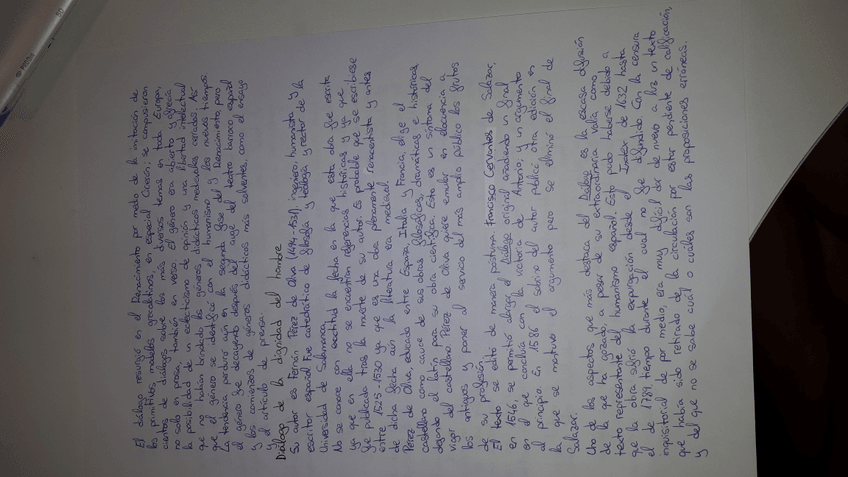 El diálogo resurgió en el Renacimiento por medio de la imitación de
los primitivos modelos grecolatinos, en especial Cicerón; se compusieron
cientos de diálogos sobre los más diversos temas en toda Europa,
no solo en prosa, también en verso. El género era abierto y ofrecía
la posibilidad de un eclecticismo de opinión y una libertad intelectual
que no habían brindado los géneros didácticos medievales cerrados. Así
que el género se identifica con el humanismo y los nuevos tiempos.
La tendencia perduró aún en la segunda fase del Renacimiento, pero
el género fue decayendo después del auge del teatro barroco español
y los comienzos de géneros didácticos más solventes, como el ensayo
y el artículo de prensa.
Diálogo de la dignidad del hombre
Su autor es Fernán Pérez de Oliva (1494-1531). ingeniero, humanista y
escritor español. Fue catedrático de filosofía y teología y rector de la
Universidad de Salamanca.
No se conoce con exactitud la fecha en la que esta obra fue escrita
ya que en ella no se encuentran referencias históricas y ya que
fue publicada tras la muerte de su autor. Es probable que se escribiese
entre 1525-1530 ya que es una obra plenamente renacentista y antes
de dicha fecha aún la literatura era medieval.
Pérez de Oliva, educado entre España, Italia y Francia, elige el
castellano como cauce de sus obras filosóficas, dramáticas e históricas,
dejando el latín para su obra científica. Esto es un síntoma del
vigor del castellano. Pérez de Oliva quiere emular en elocuencia a
los antiguos y poner al servicio del más amplio público los frutos
de su profesión.
El texto se editó de manera póstuma. Francisco Cervantes de Salazar,
en 1546, se permitió alargar el Diálogo original añadiendo un final
en el que concluía con la victoria de Antonio, y un argumento
al principio. En 1586 el sobrino del autor publicó otra edición en
la que se mantuvo el argumento pero se eliminó el final de
Salazar.
Uno de los aspectos que más destaca del Diálogo es la escasa difusión
de la que ha gozado, a pesar de su extraordinaria valía como
texto representante del humanismo español. Esto pudo haberse debido a
que la obra sufrió la expurgación desde el Índex de 1632 hasta
el de 1789, tiempo durante el cual no fue difundido. Con la censura
inquisitorial de por medio, era muy difícil dar de nuevo a luz un texto
que había sido retirado de la circulación por estar pendiente de calificación,
y del que no se sabe cuál o cuáles son las proposiciones erróneas.